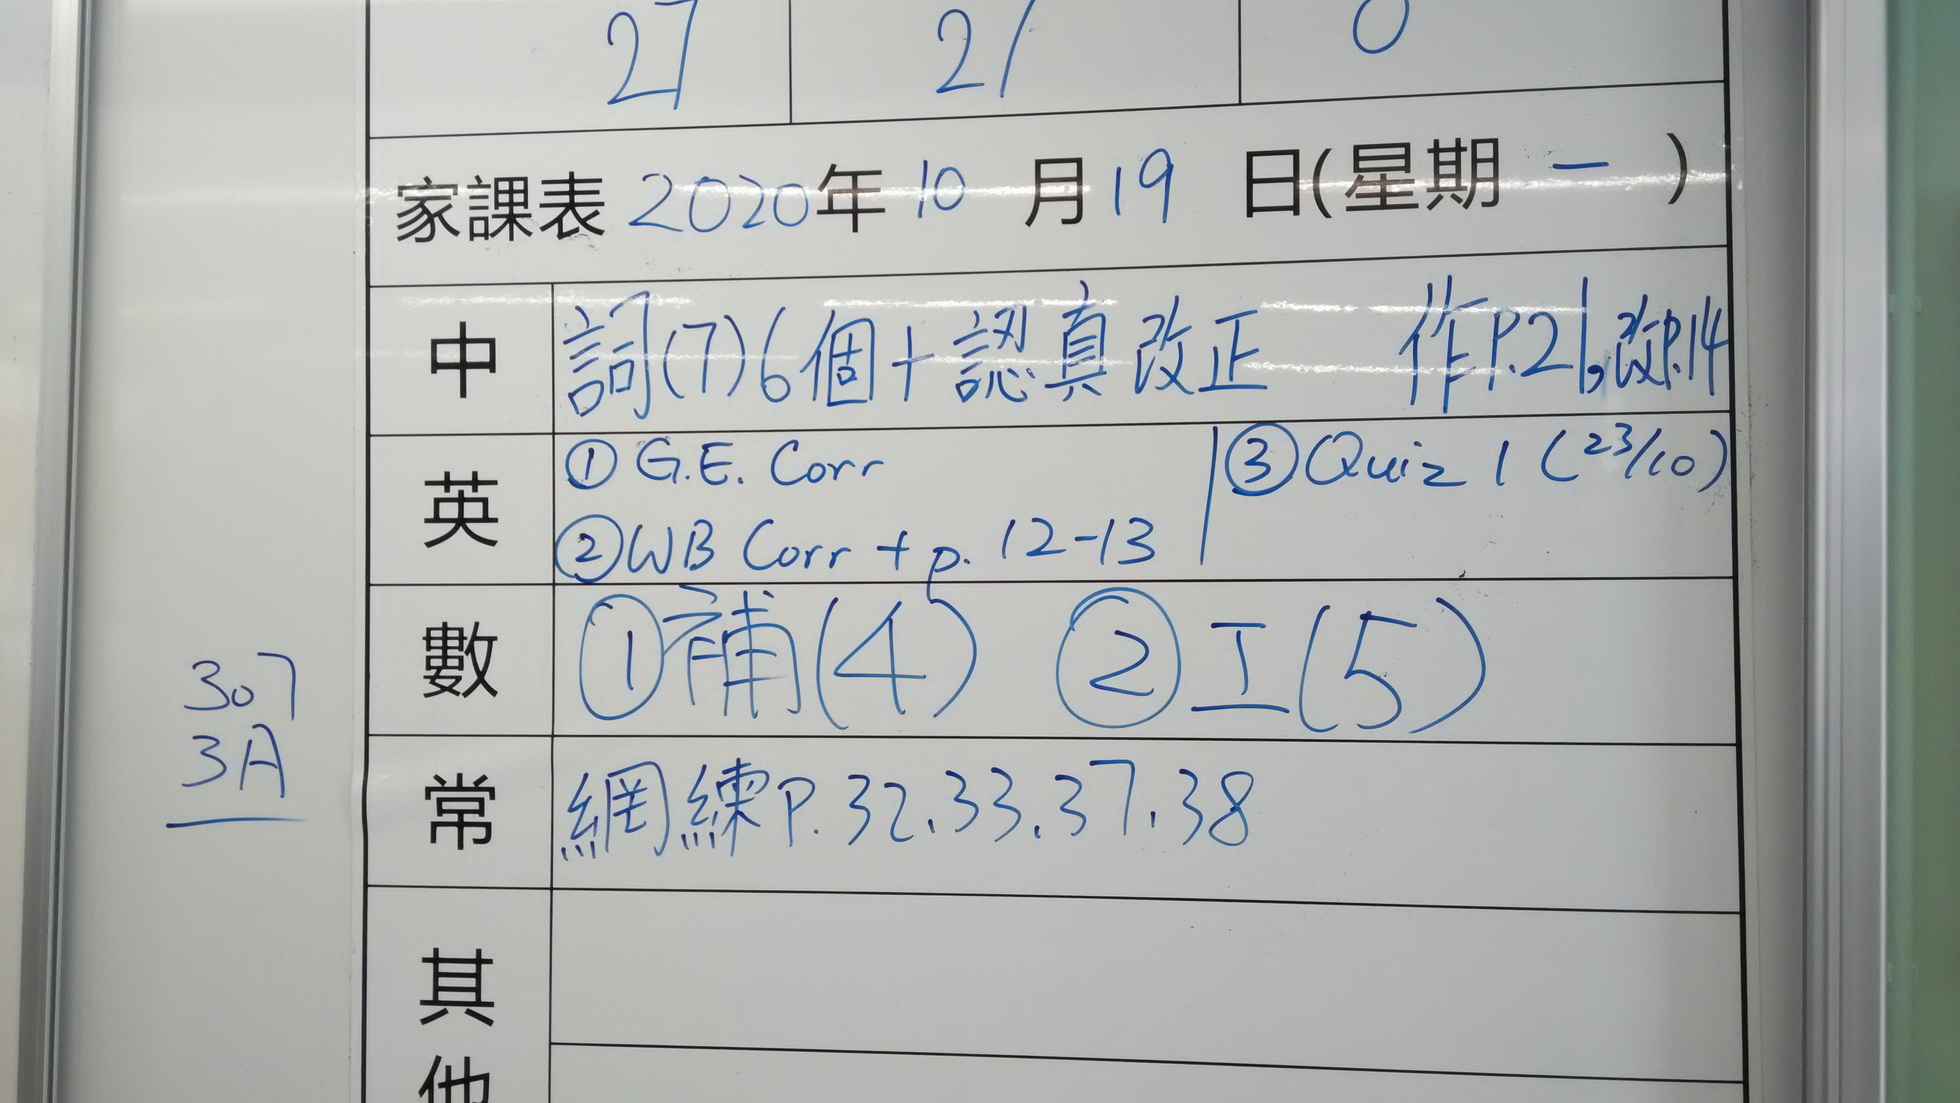 27 21 0
家課表 2020年 10 月 19 日(星期 一 )
中 詞(7)6個+認真改正 作P.21,改P.14
英 ① G.E. Corr ③ Quiz 1 (23/10)
② WB Corr + p. 12-13
數 ①補(4) ②工(5)
307
3A
常 網練P.32.33.37.38
其
他